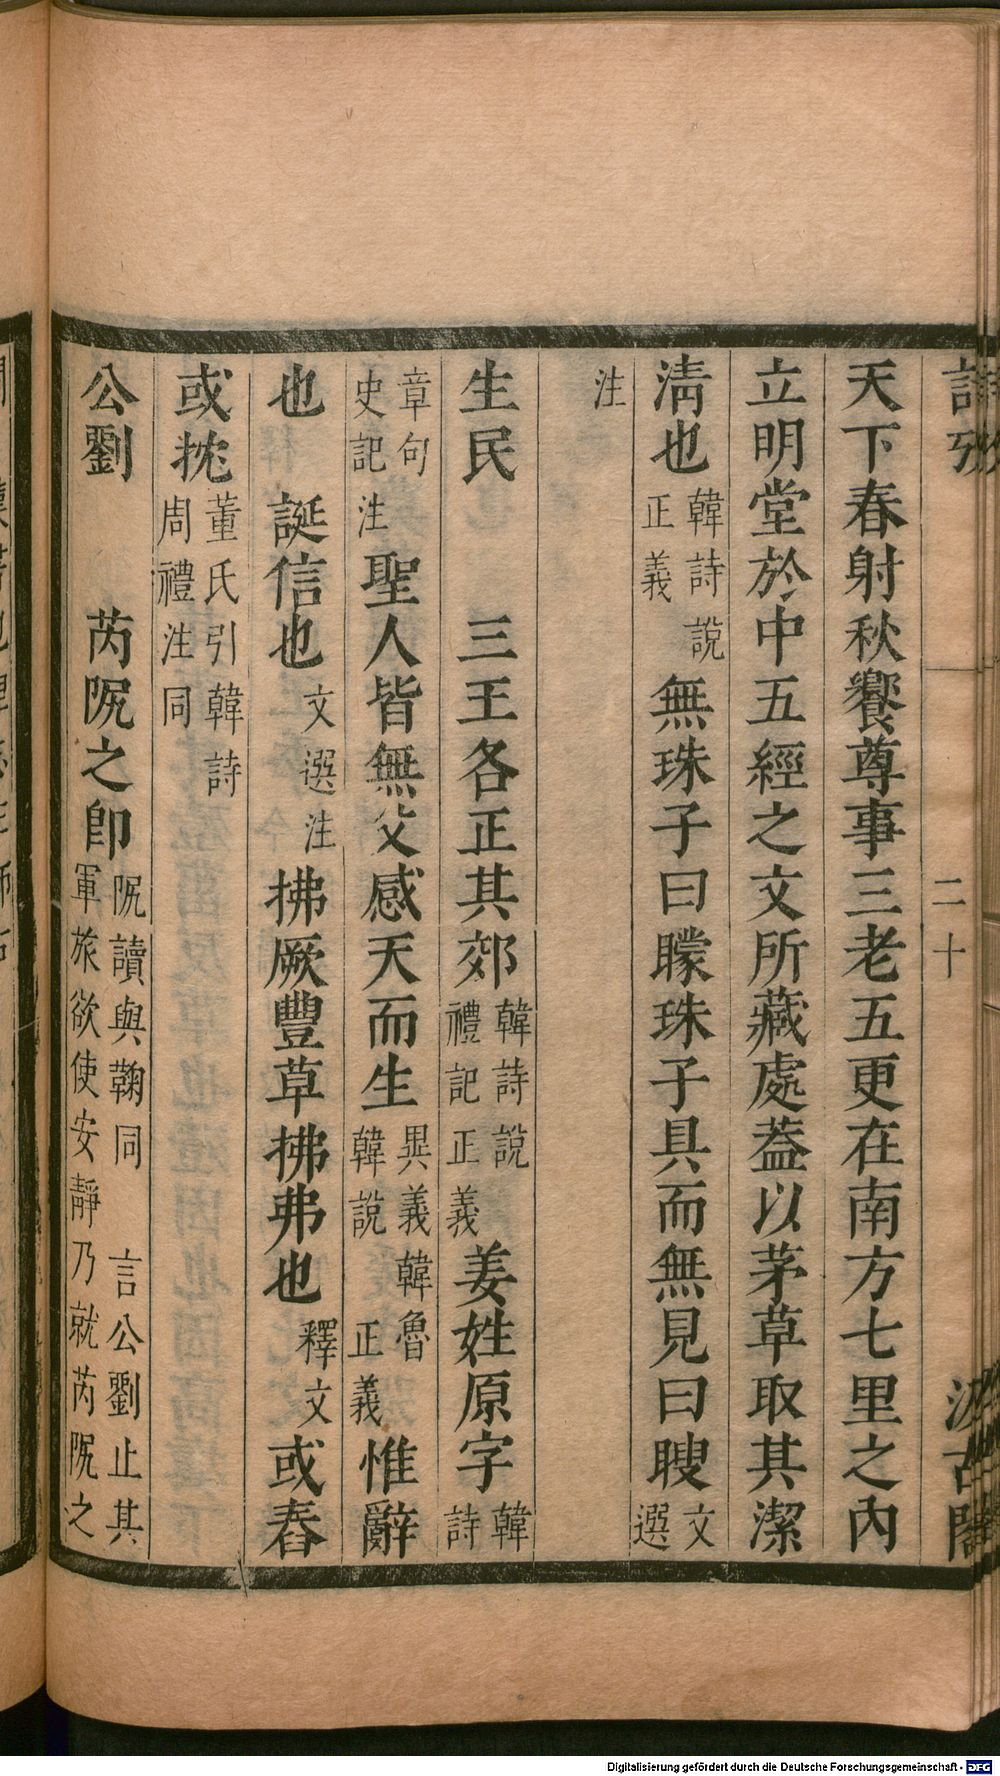 詩攷
二十
汲古閣
天下春射秋饗尊事三老五更在南方七里之內
立明堂於中五經之文所藏處蓋以茅草取其潔
清也韓詩說正義無珠子曰矇珠子具而無見曰瞍文選
注
生民　三王各正其郊韓詩說禮記正義姜姓原字韓詩
章句史記注聖人皆無父感天而生異義韓魯韓說正義惟辭
也　誕信也文選注拂厥豐草拂弗也釋文或舂
或抌董氏引韓詩周禮注同
公劉　芮阮之即阮讀與鞠同　言公劉止其軍旅欲使安靜乃就芮阮之
Digitalisierung gefördert durch die Deutsche Forschungsgemeinschaft - DFG